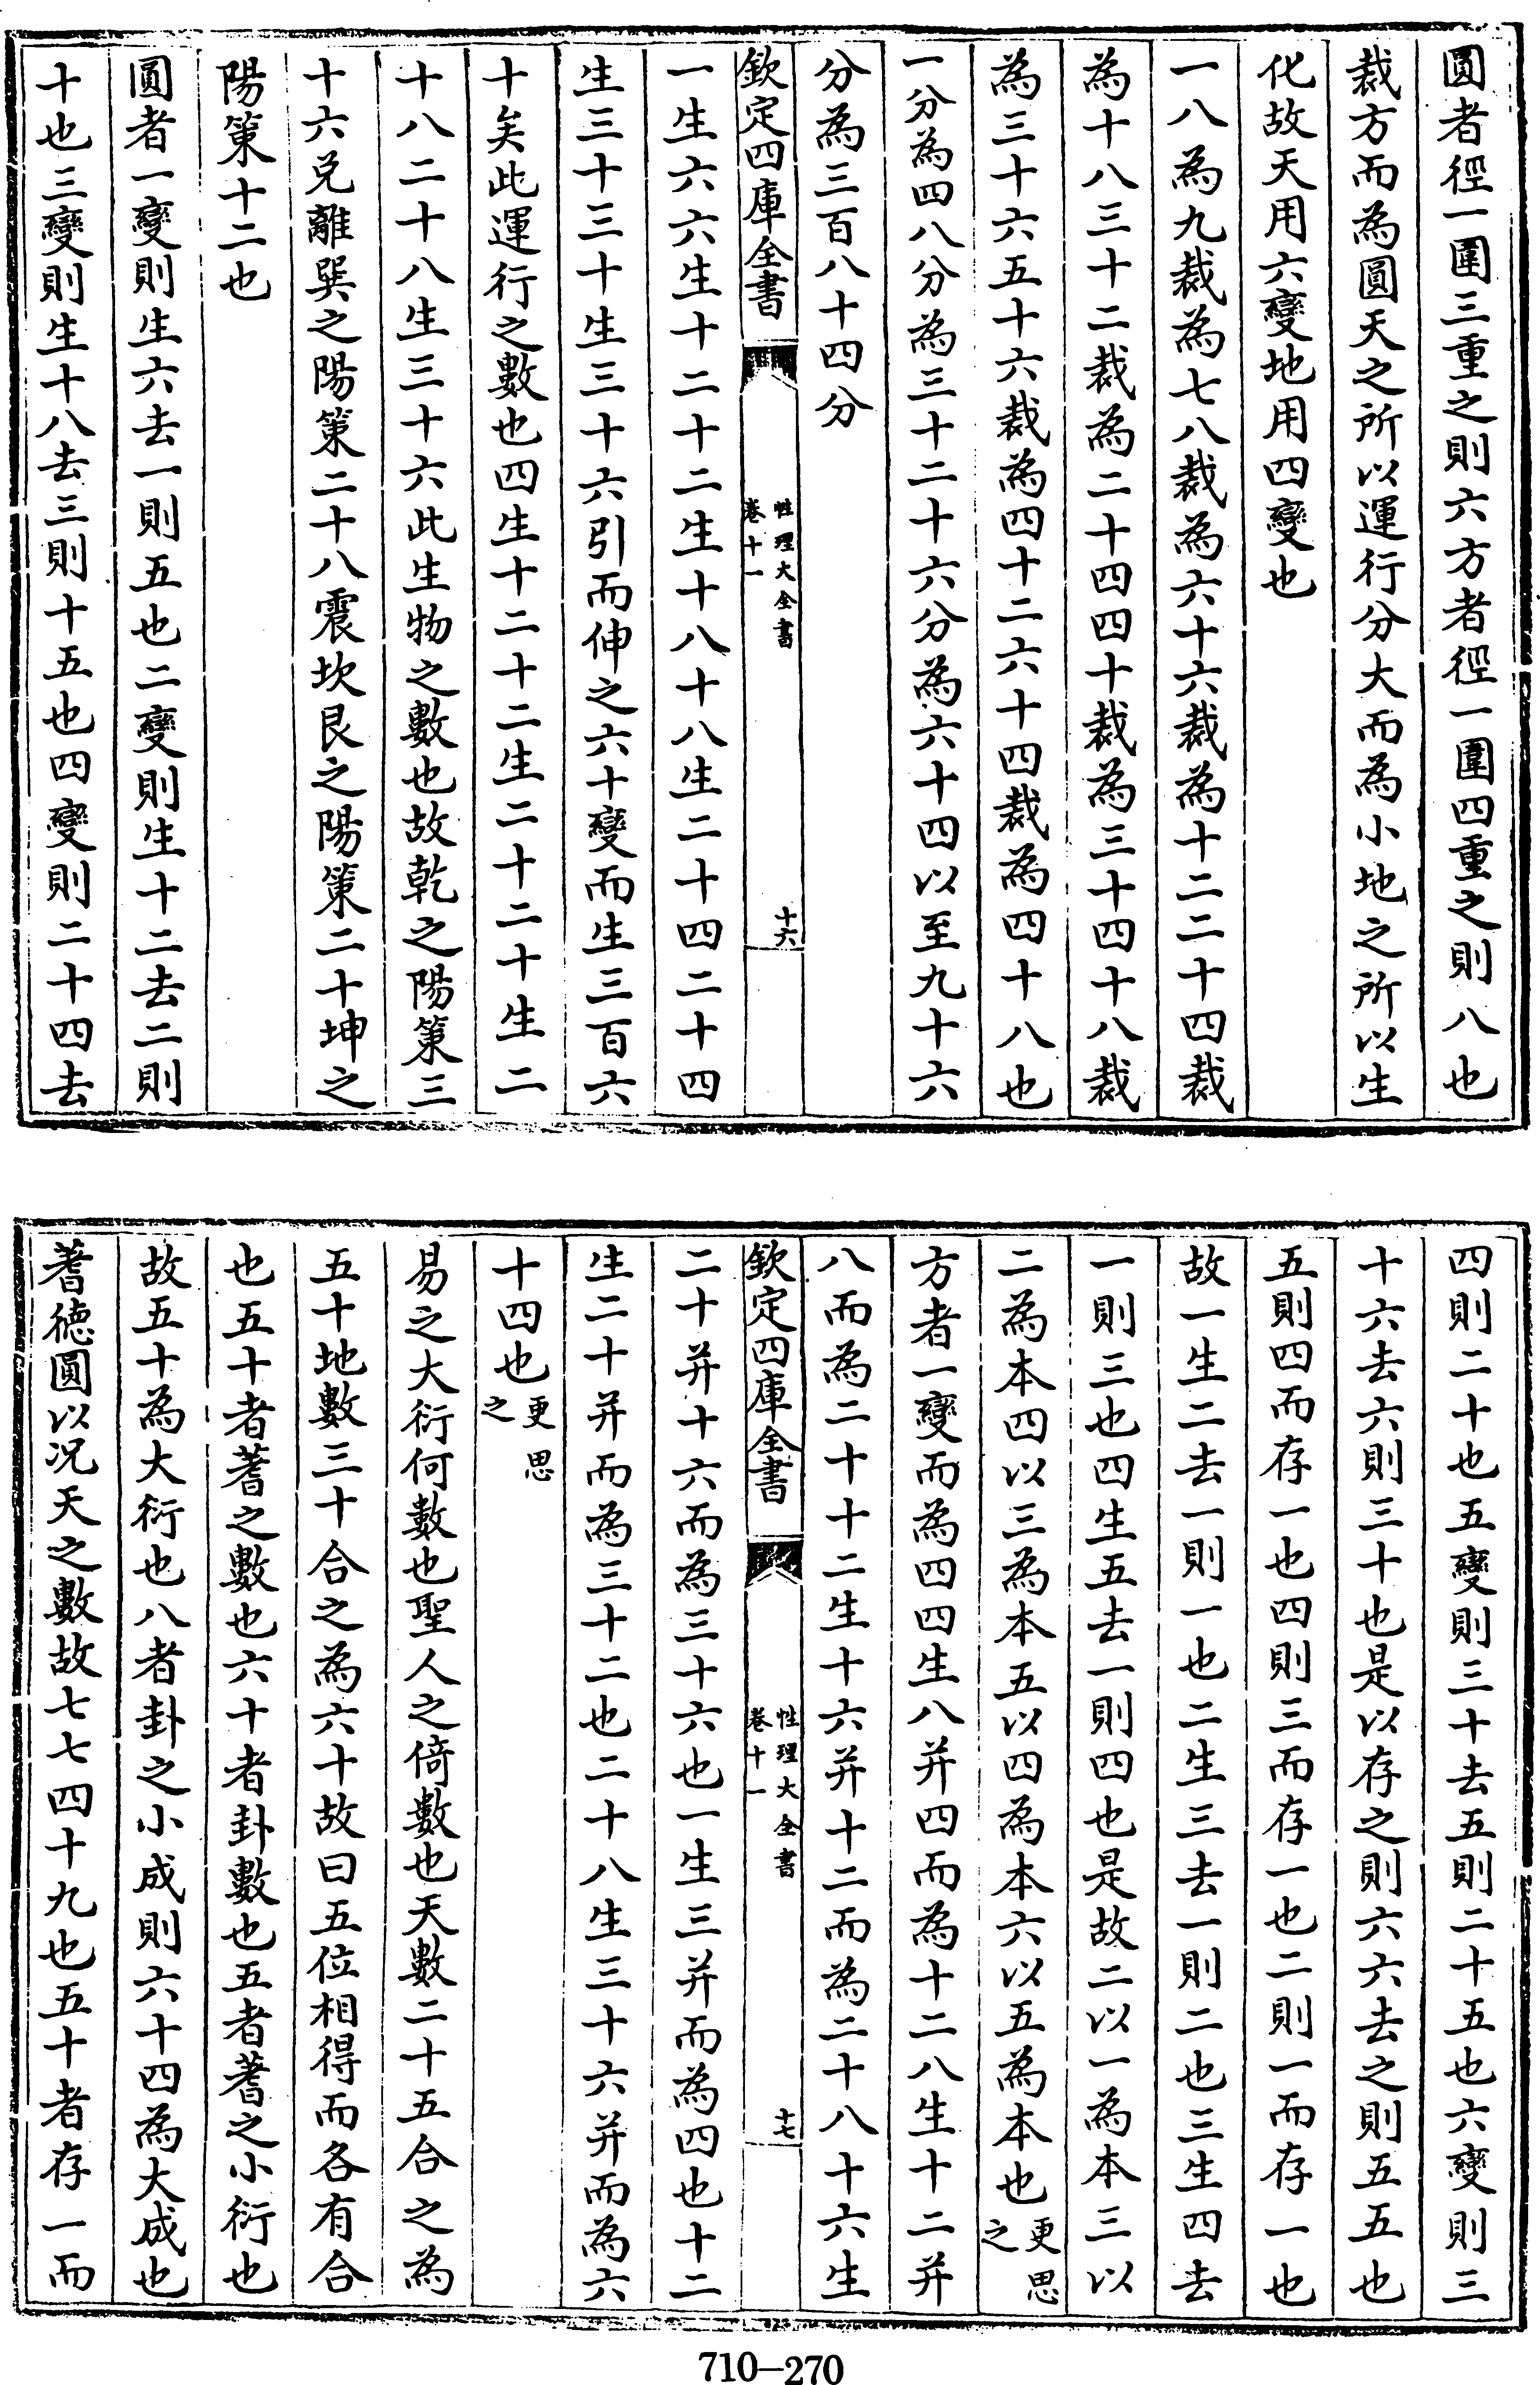 圓者徑一圍三重之則六方者徑一圍四重之則八也
裁方而為圓天之所以運行分大而為小地之所以生
化故天用六變地用四變也
一八為九裁為七八裁為六十六裁為十二二十四裁
為十八三十二裁為二十四四十裁為三十四十八裁
為三十六五十六裁為四十二六十四裁為四十八也
一分為四八分為三十二十六分為六十四以至九十六
分為三百八十四分
欽定四庫全書
性理大全書
卷十一
十六
一生六六生十二十二生十八十八生二十四二十四
生三十三十生三十六引而伸之六十變而生三百六
十矣此運行之數也四生十二十二生二十二十生二
十八二十八生三十六此生物之數也故乾之陽策三
十六兌離巽之陽策二十八震坎艮之陽策二十坤之
陽策十二也
圓者一變則生六去一則五也二變則生十二去二則
十也三變則生十八去三則十五也四變則二十四去
四則二十也五變則三十去五則二十五也六變則三
十六去六則三十也是以存之則六六去之則五五也
五則四而存一也四則三而存一也二則一而存一也
故一生二去一則一也二生三去一則二也三生四去
一則三也四生五去一則四也是故二以一為本三以
二為本四以三為本五以四為本六以五為本也更思之
方者一變而為四四生八并四而為十二八生十二并
八而為二十十二生十六并十二而為二十八十六生
欽定四庫全書
性理大全書
卷十一
十七
二十并十六而為三十六也一生三并而為四也十二
生二十并而為三十二也二十八生三十六并而為六
十四也更思之
易之大衍何數也聖人之倚數也天數二十五合之為
五十地數三十合之為六十故曰五位相得而各有合
也五十者蓍之數也六十者卦數也五者蓍之小衍也
故五十為大衍也八者卦之小成則六十四為大成也
蓍德圓以况天之數故七七四十九也五十者存一而
710-270